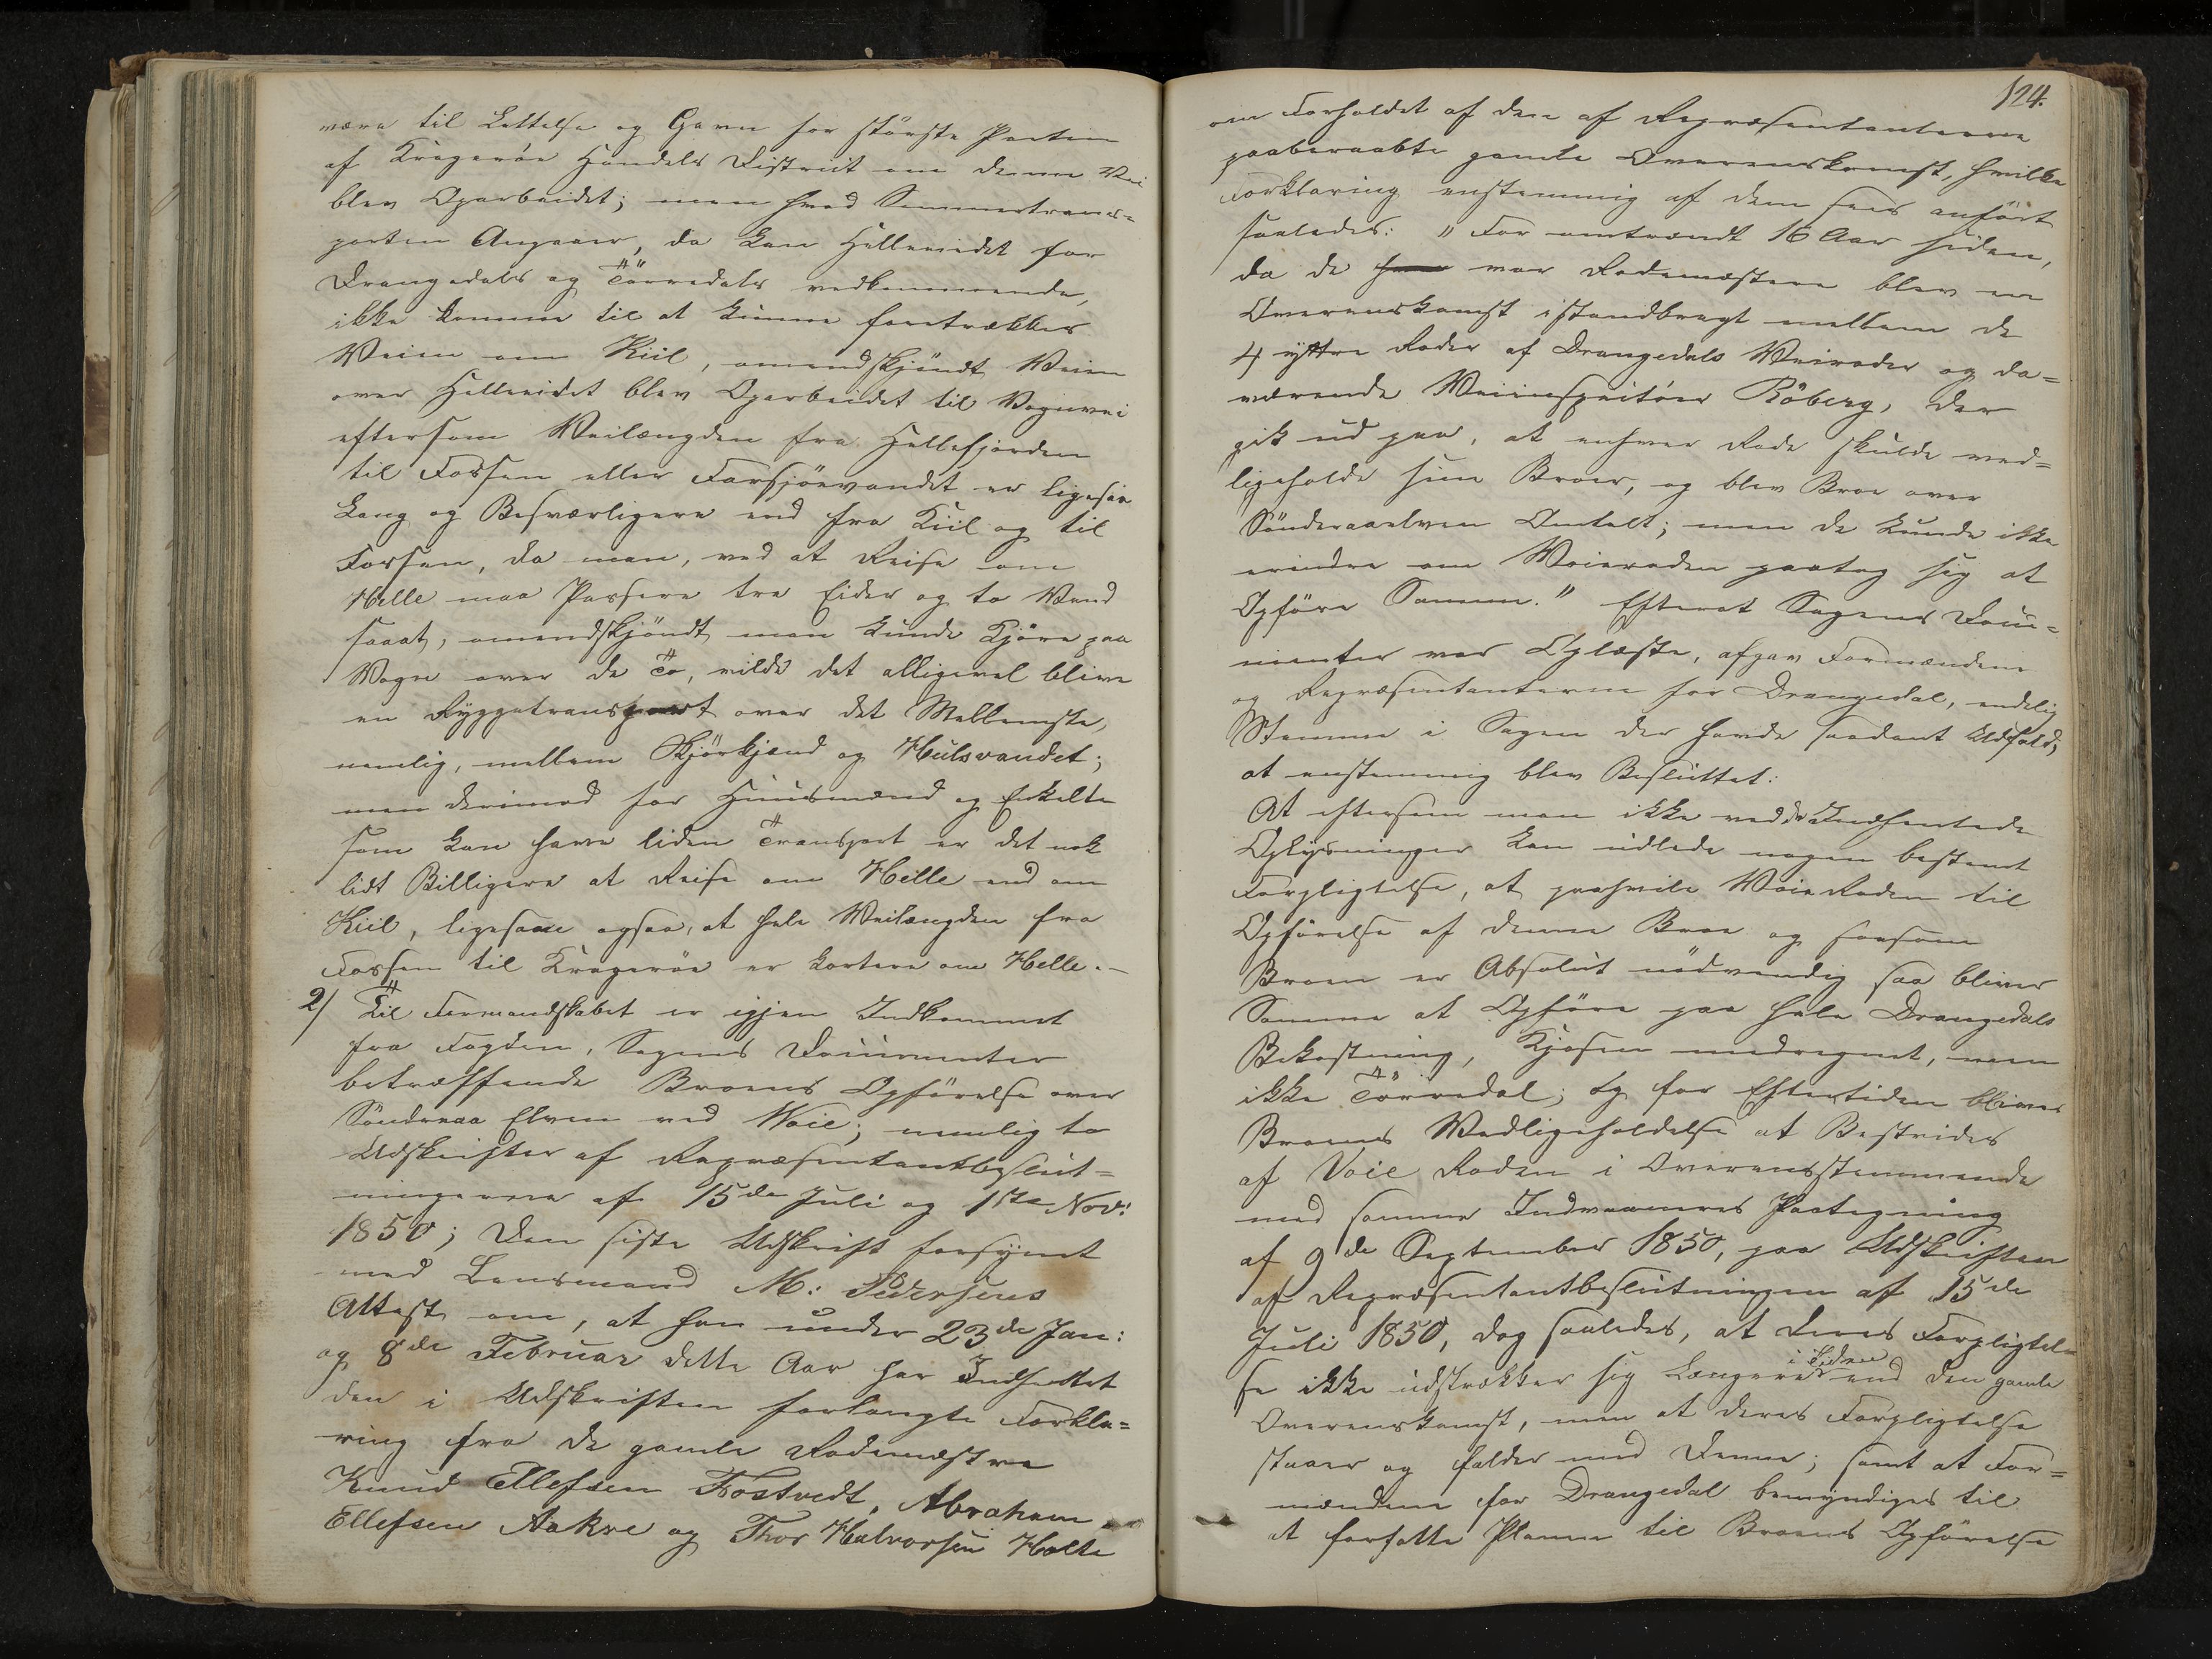 være til Lettelse og Gavn for störste Parten
af Kragerøe Handels District om denne Vei
blev Oparbeidet; men hvad Sommertrans=
porten Angaaer, da kan Helleeidet for
Drangedals og Törredals vedkommende,
ikke komme til at kunne foretrækkes
Veien om Kiil, omendskjöndt Veien
over Helleeidet blev Oparbeidet til Vognvei
eftersom Veilængden fra Hellefjorden
til Fossen eller Farsjöevandet er ligesaa
Lang og Besværligere end fra Kiil og til
Fossen, da man, ved at Reise om
Helle maa Passere tre Eider og to Vand
saaat, omendskjöndt man kunde Kjöre paa
Vogn over de To, vilde det alligevel blive
en Ryggetransport over det Mellemste,
nemlig, mellem Kjörkjend og Hulsvandet;
men derimod for Huusmænd og Enkelte
som kan have liden Transport er det nok
lidt Billigere at Reise om Helle end om
Kiil, ligesom ogsaa, at hele Veilængden fra
Fossen til Kragerøe er kortere om Helle.—
2/ Til Formandskabet er igjen Indkommet
fra Fogden, Sagens Documenter
betræffende Broens Opförelse over
Sönderaa Elven ved Voie; nemlig to
Udskrifter af Repræsentantbeslut=
ningerne af 15de Juli og 1ste Nov:
1850; Den siste Udskrift forsynet
med Lensmand M: Pedersens
Attest om, at han under 23de Jan:
og 8de Februar dette Aar har Indhentet
den i Udskriften forlangte Forkla=
ring fra de gamle Rodemestre
Knud Ellefsen Tostvedt, Abraham
Ellefsen Aakre og Thor Halvorsen Holte
124.
om Forholdet af den af Repræsentanterne
paaberaabte gamle Overenskomst, hvilke
Forklaring enstemmig af dem sees anfört
saaledes: "For omtrendt 16 Aar siden,
da de var Rodemestere blev en
Overenskomst istandbragt mellem de
4 yttre Roder af Drangedals Veiroder og da=
værende Veiinspecteur Röberg, der
gik ud paa, at enhver Rode skulde ved=
ligeholde sine Broer, og blev Broe over
Sönderaaelven Omtalt; men de kunde ikke
erindre om Voieroden paatog sig at
Opföre Samme." Efterat Sagens Docu=
menter var Oplæste, afgav Formændene
og Repræsentanterne for Drangedal, endelig
Stemme i Sagen der havde saadant Udfald,
at enstemmig blev Besluttet:
At eftersom man ikke ved de Indhentede
Oplysninger kan udlede nogen bestemt
Forpligtelse, at paahvile Voie Roden til
Opförelse af denne Broe og saasom
Broen er Absolut nödvendig saa bliver
Samme at Opföre paa hele Drangedals
Bekostning, Kjosen medregnet, men
ikke Törredal; og for Eftertiden bliver
Broens Vedligeholdelse at Bestrides
af Voie Roden i Overensstemmende
med samme Indvaaneres Paategning
af 9de September 1850, paa Udskriften
af Repræsentantbeslutningen af 15de
Juli 1850, dog saaledes, at deres Forpligtel=
se ikke udstrækker sig Længere i Tiden end den gamle
Overenskomst, men at deres Forpligtelse
staaer og falder med Denne; samt at For=
mændene for Drangedal bemyndiges til
at forfatte Planen til Broens Opförelse